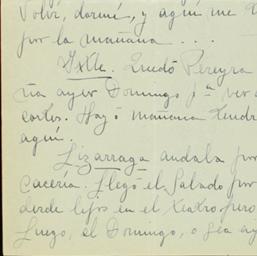 Volví, dormí, y aquí me
por la mañana . . .
Quedó Pereyra
ayer Domingo pª ver
cartas. Hoy ó mañana tendr
aquí.
Lizarraga andaba por
cacería. Llegó el Sabado por
desde lejos en el teatro, pero
Luego, el Domingo, o sea ay